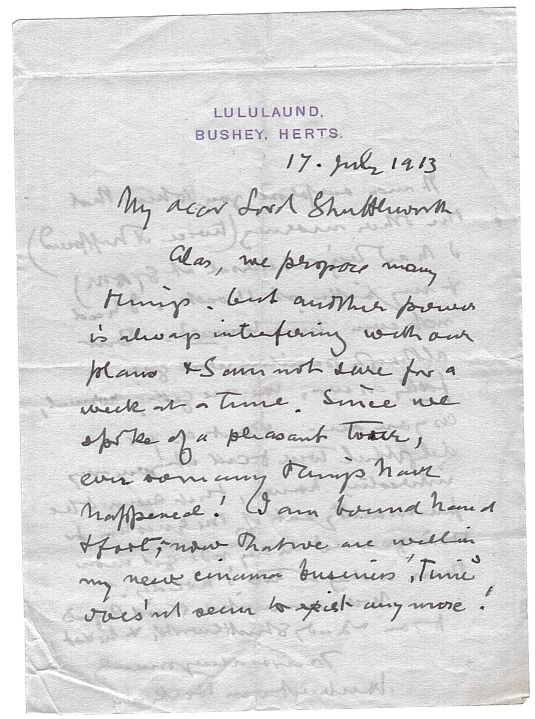 LULULAUND,
BUSHEY, HERTS.
17. July 1913
My dear Lord Shuttleworth
Alas, we propose many
things - but another power
is always interfering with our
plans & I am not sure for a
week at a time. Since we
spoke of a pleasant Tour,
ever so many things have
happened! I am bound hand
& foot; now that we are well in
my new cinema business, "Time"
does'nt seem to exist any more!